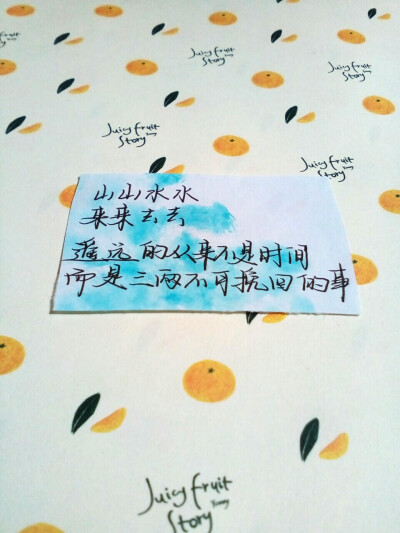 Juicy fruit
Story
Juicy fruit
Story
Juicy fruit
Story
Juicy fruit
Story
山山水水
来来去去
遥远的从来不是时间
而是三两不可挽回的事
Juicy fruit
Story